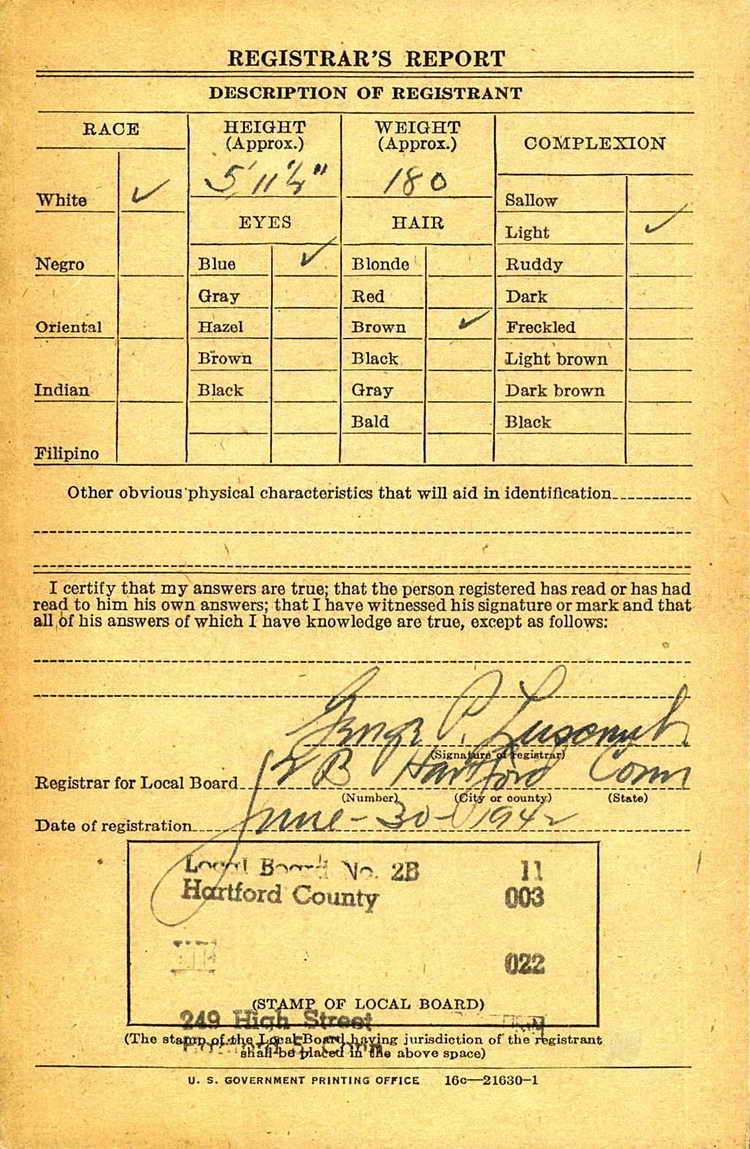 REGISTRAR'S REPORT
DESCRIPTION OF REGISTRANT
RACE
HEIGHT
(Approx.)
WEIGHT
(Approx.)
COMPLEXION
5' 11½" 180
White ✓
EYES
HAIR
Sallow
Light ✓
Negro
Blue ✓
Blonde
Ruddy
Gray
Red
Dark
Oriental
Hazel
Brown ✓
Freckled
Brown
Black
Light brown
Indian
Black
Gray
Dark brown
Bald
Black
Filipino
Other obvious physical characteristics that will aid in identification
I certify that my answers are true; that the person registered has read or has had
read to him his own answers; that I have witnessed his signature or mark and that
all of his answers of which I have knowledge are true, except as follows:
George P. Luscomb
(Signature of registrar)
Registrar for Local Board 2B Hartford Conn
(Number) (City or county) (State)
Date of registration June-30-1942
Local Board No. 2B 11
Hartford County 003
022
(STAMP OF LOCAL BOARD)
249 High Street
(The stamp of the Local Board having jurisdiction of the registrant
shall be placed in the above space)
U. S. GOVERNMENT PRINTING OFFICE 16c—21630-1